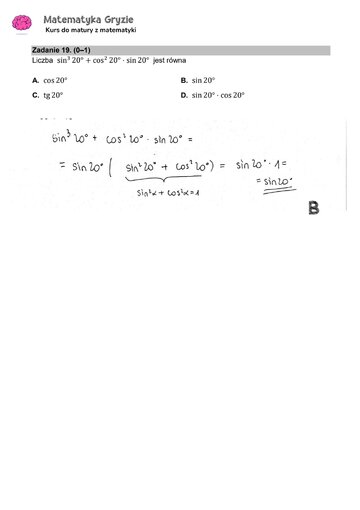 Matematyka Gryzie
Kurs do matury z matematyki
Zadanie 19. (0–1)
Liczba sin³ 20° + cos² 20° · sin 20° jest równa
A. cos 20°
B. sin 20°
C. tg 20°
D. sin 20° · cos 20°
sin³ 20° + cos² 20° · sin 20° =
= sin 20° ( sin² 20° + cos² 20° ) = sin 20° · 1 =
sin²x + cos²x = 1
= sin 20°
B